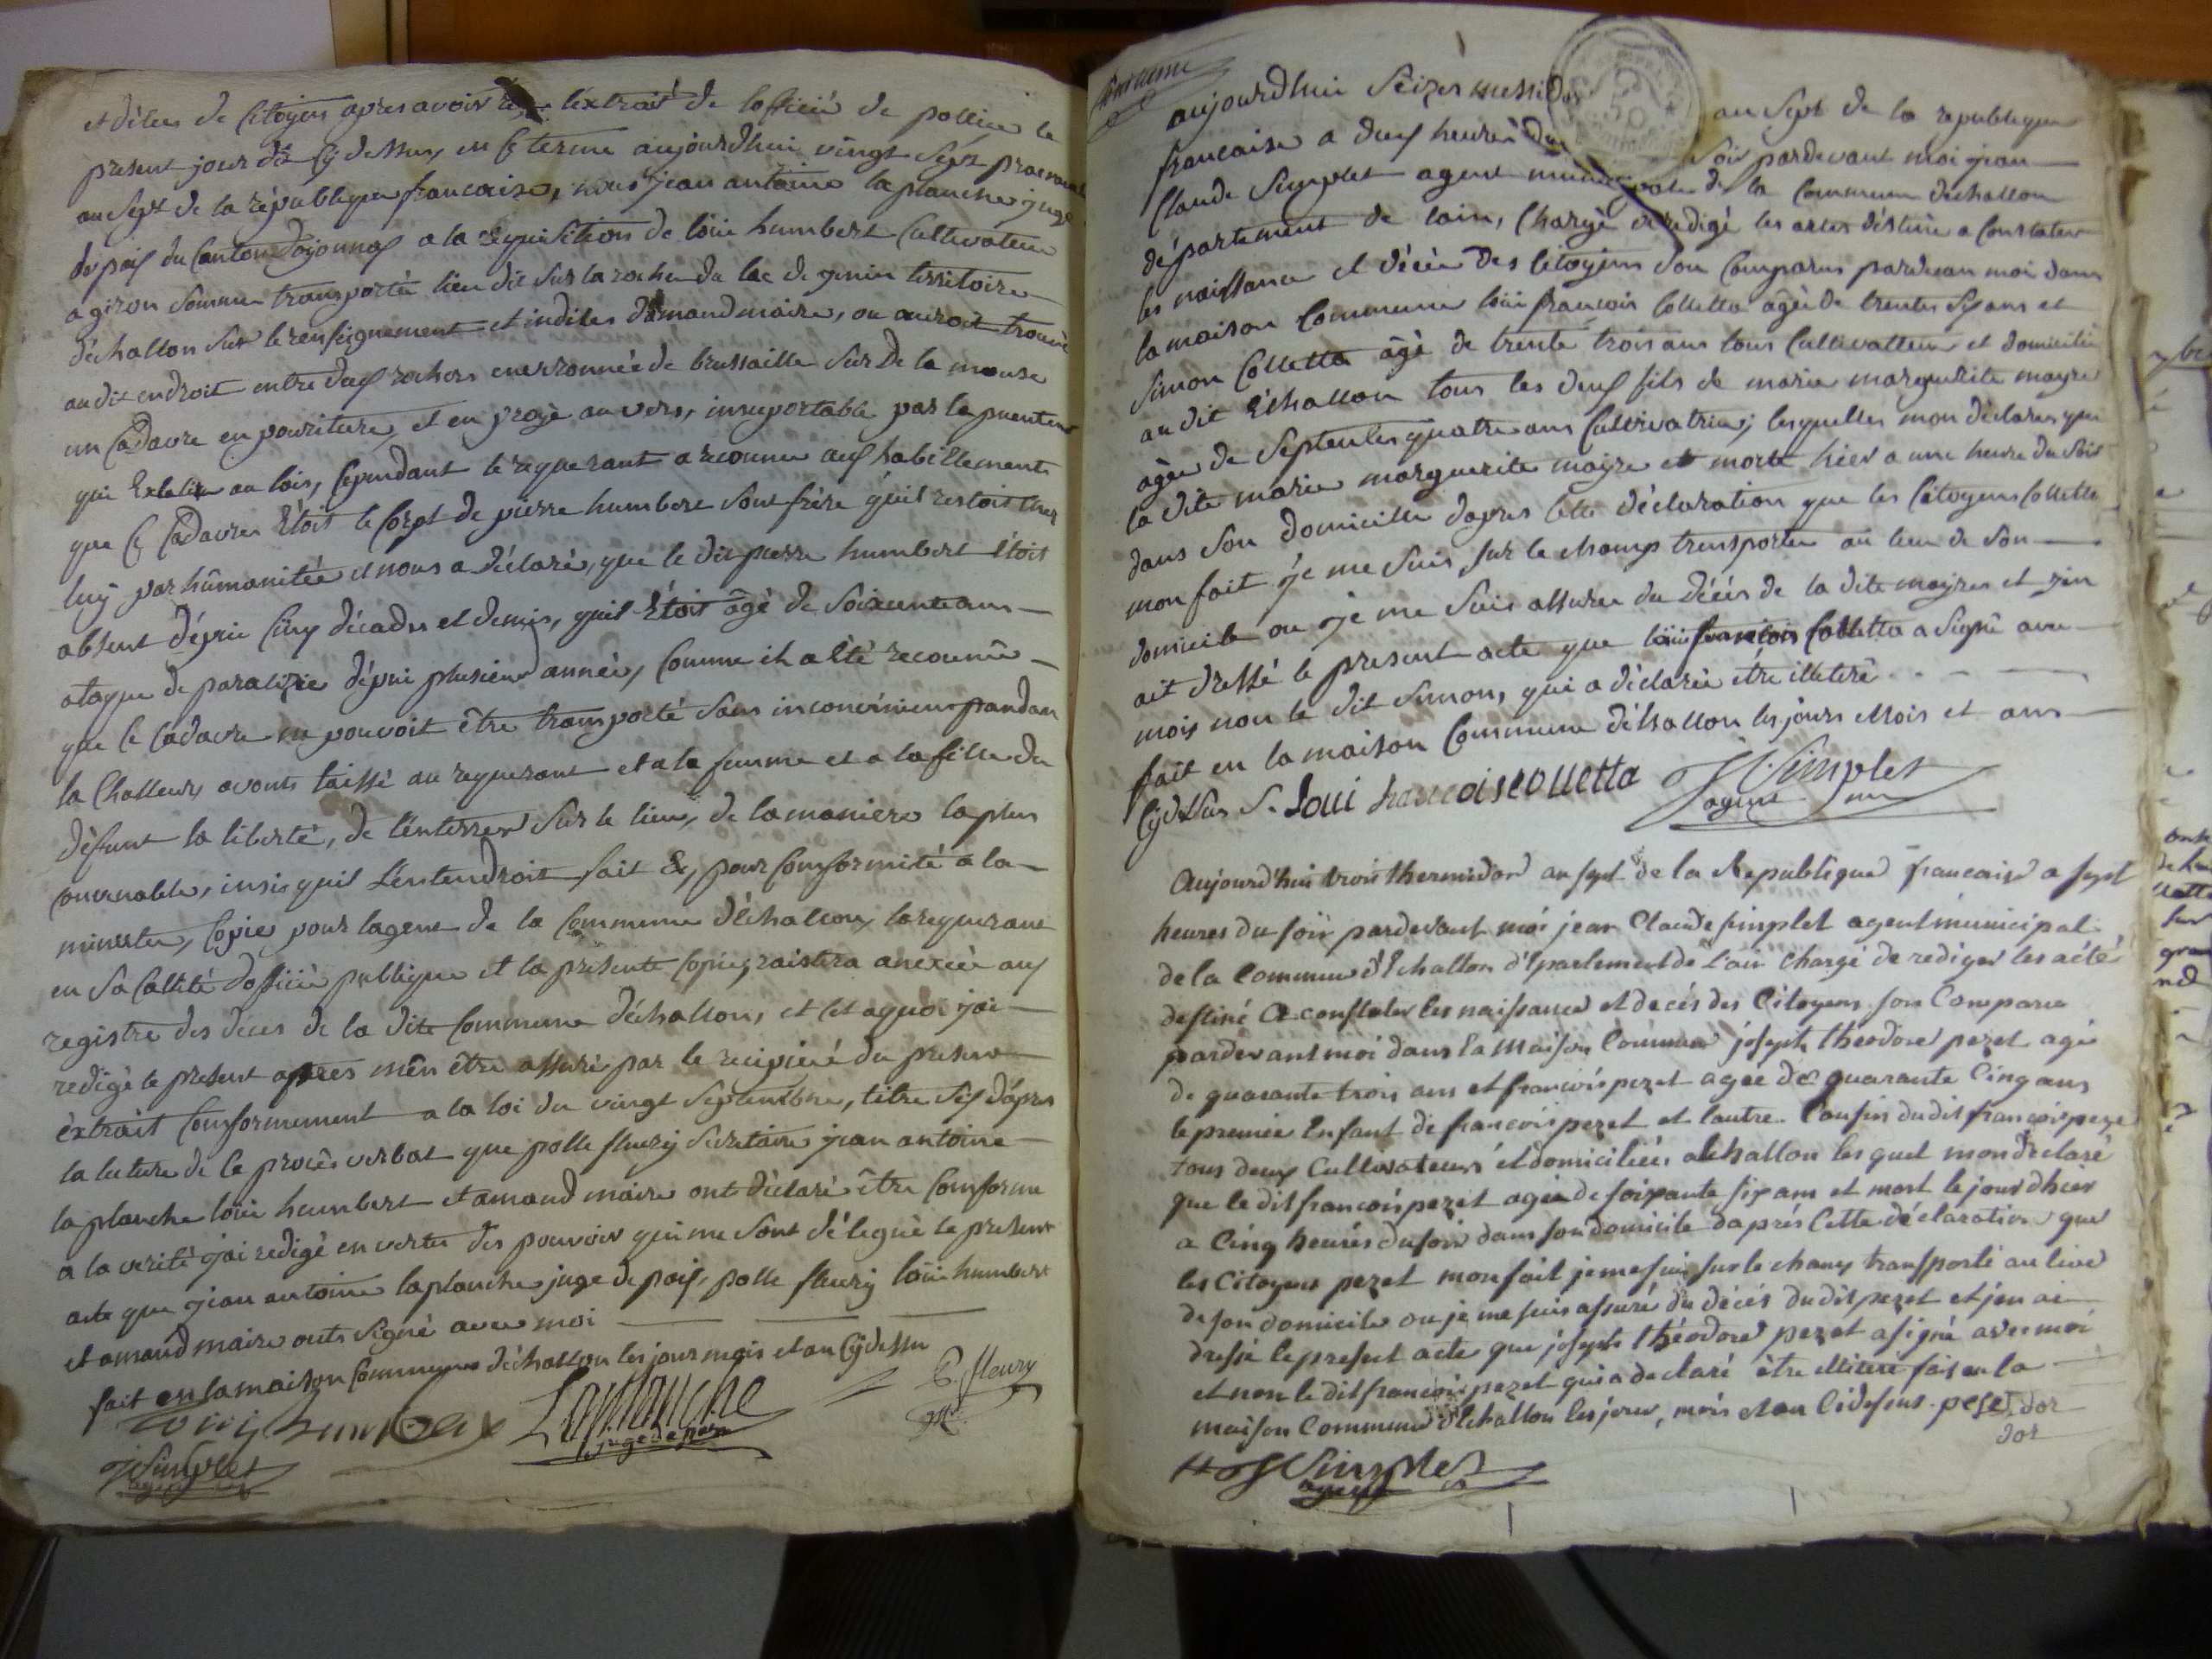 et déces de Citoyens apres avoir l'extrait de lofficié de pollice le
present jour dit Cy dessus, en Ce terme aujourdhuy vingt Sept praireal
an Sept de la république francaise, nous jean antoine la planche juge
de paix du Canton Doyonnax a la requisition de loüi humbert Cultivateur
a giron Somme transportée lieu dit Sur la roche du lac de genin territoire
déchallon Sur le renseignement et indiles damand maire, ou auroit trouvé
au dit endroit entre deux rochers environnée de brussaille Sur de la mouse
un Cadavre en pouriture, et en projé au vers, insuportable par la puenteur
qui Exaloit au lois, Cependant le requerant a reconnu aux habillements
que Ce Cadavre Étoit le Corpt de pierre humbert Sont frère qu'il restoit chez
luy par hûmanitée et nous a déclaré, que le dit pierre humbert étoit
absent dépui Cinq décades et demis, quil Étoit âgé de Soixante ans
ataque de paralizie dépui plusieur année, Comme il a été reconnû
que Ce Cadavre ne pouvoit être transporté Sans inconvénient pandan
la Challeur, avons laissé au requerant et a la femme et a la fille du
défunt la liberté, de l'enterrer Sur le lieu, de la maniere la plus
convenable, insis quil L'entendroit fait &, pour Conformité a la
minutte, Copie pour lagent de la Commune d'Échallon, la requerant
en Sa Callité dofficié publique et la présente Copie, raistera anexée aux
registre des déces de la dite Commune déchallon, et Cet a quoi jai
redigé le present apres mên être assuré par le recipicé du present
èxtrait Conformement a la loi du vingt Septembre, titre Six d'áprès
la luture de Ce procês verbal que polle fleurÿ Secretaire jean antoine
la planche loüi humbert et amand maire ont déclaré être Conforme
a la verité jai redigé en vertu des pouvoir qui me Sont délegué le present
acte que jean antoine laplanche juge de paix, polle fleurÿ loüi humbert
et amand maire onts Signé avec moi
fait en la maison Commune déchallon les jour mois et an Cÿdessu
Louis humbert Laplanche juge de paix P. fleury
J Simplet agent
aujourdhui Seize messidor an Sept de la republique
francaise a deux heures du Soir pardevant moi jean
Claude Simplet agent municipale de la Commune déchallon
département de lain, Chargé de redigé les actes déstiné a Constater
les naissance et décés des Citoyens Son Comparus pardevan moi dans
la maison Commune loüi francois Colletta agè de trente Six ans et
Simon Colletta âgé de trente trois ans tous Cultivatteur et domicilié
au dit Échallon tous les deux fils de marie marguerite mayre
agée de Septentes quatre ans Cultivatrice; lesquelles mon déclares que
la dite marie marguerite mayre et morte hier a une heure du Soir
dans Son domicille dapres Cette déclaration que les Citoyens Colletta
mon fait je me Suis Sur le champ transporter au lieu de Son
domicile ou je me Suis assurer du décés de la dite mayre et jen
ait dressé le present acte que loüi francois Colletta a Signé avec
mois non le dit Simon, qui a déclarée être illeterê
fait en la maison Commune déchallon les jours Mois et ans
Cÿdessus S. Loui francois collettta J Simplet
agent
Aujourd'hui trois thermidor an sept de la République francaise a sept
heures du soir pardevant moi jean Claude simplet agent municipal
de la Commune d'Echallon département de l'ain chargé de rediger les acté
destiné a constater les naissance et decés des Citoyens son Comparu
pardevant moi dans la maison Commune joseph théodore pezet agé
de quarante trois ans et francois pezet agee de quarante Cinq ans
le premier Enfant de francois pezet et lautre Cousin dudit francois peze
tous deux Cultivateurs et domiciliés a Echallon les quel mon declaré
que le dit francois pezet agée de soixante six ans et mort le jour dhier
a Cinq heures du soir dans son domicile dáprés Cette déclaration que
les Citoyens pezet mon fait je me suis sur le champ transporté au lieu
de son domicile ou je me suis assuré du décés du dit pezet et jen ai
dressé le present acte que joseph théodore pezet a signé avec moi
et non le dit francois pezet qui a declaré être illiteré fais en la
maison Commune dEchallon les jour, mois et an Cidessus. peset dor
dor
J Simplet
agent